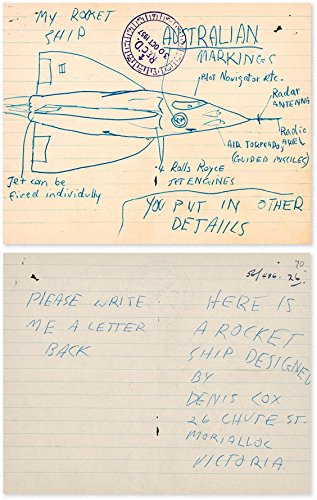 MY ROCKET
SHIP
REC'D.
30 OCT 1957
AUSTRALIAN
MARKINGS
Pilot Navigator etc.
Radar
ANTENNA
Radio
AIR TORPEDO,
(GUIDED MISSILES)
4 Rolls Royce
JET ENGINES
Jet can be
fired individully
YOU PUT IN OTHER
DETAILS
70
PLEASE WRITE
ME A LETTER
BACK
HERE IS
A ROCKET
SHIP DESIGNED
BY
DENIS COX
26 CHUTE ST.
MORIALLOC
VICTORIA.